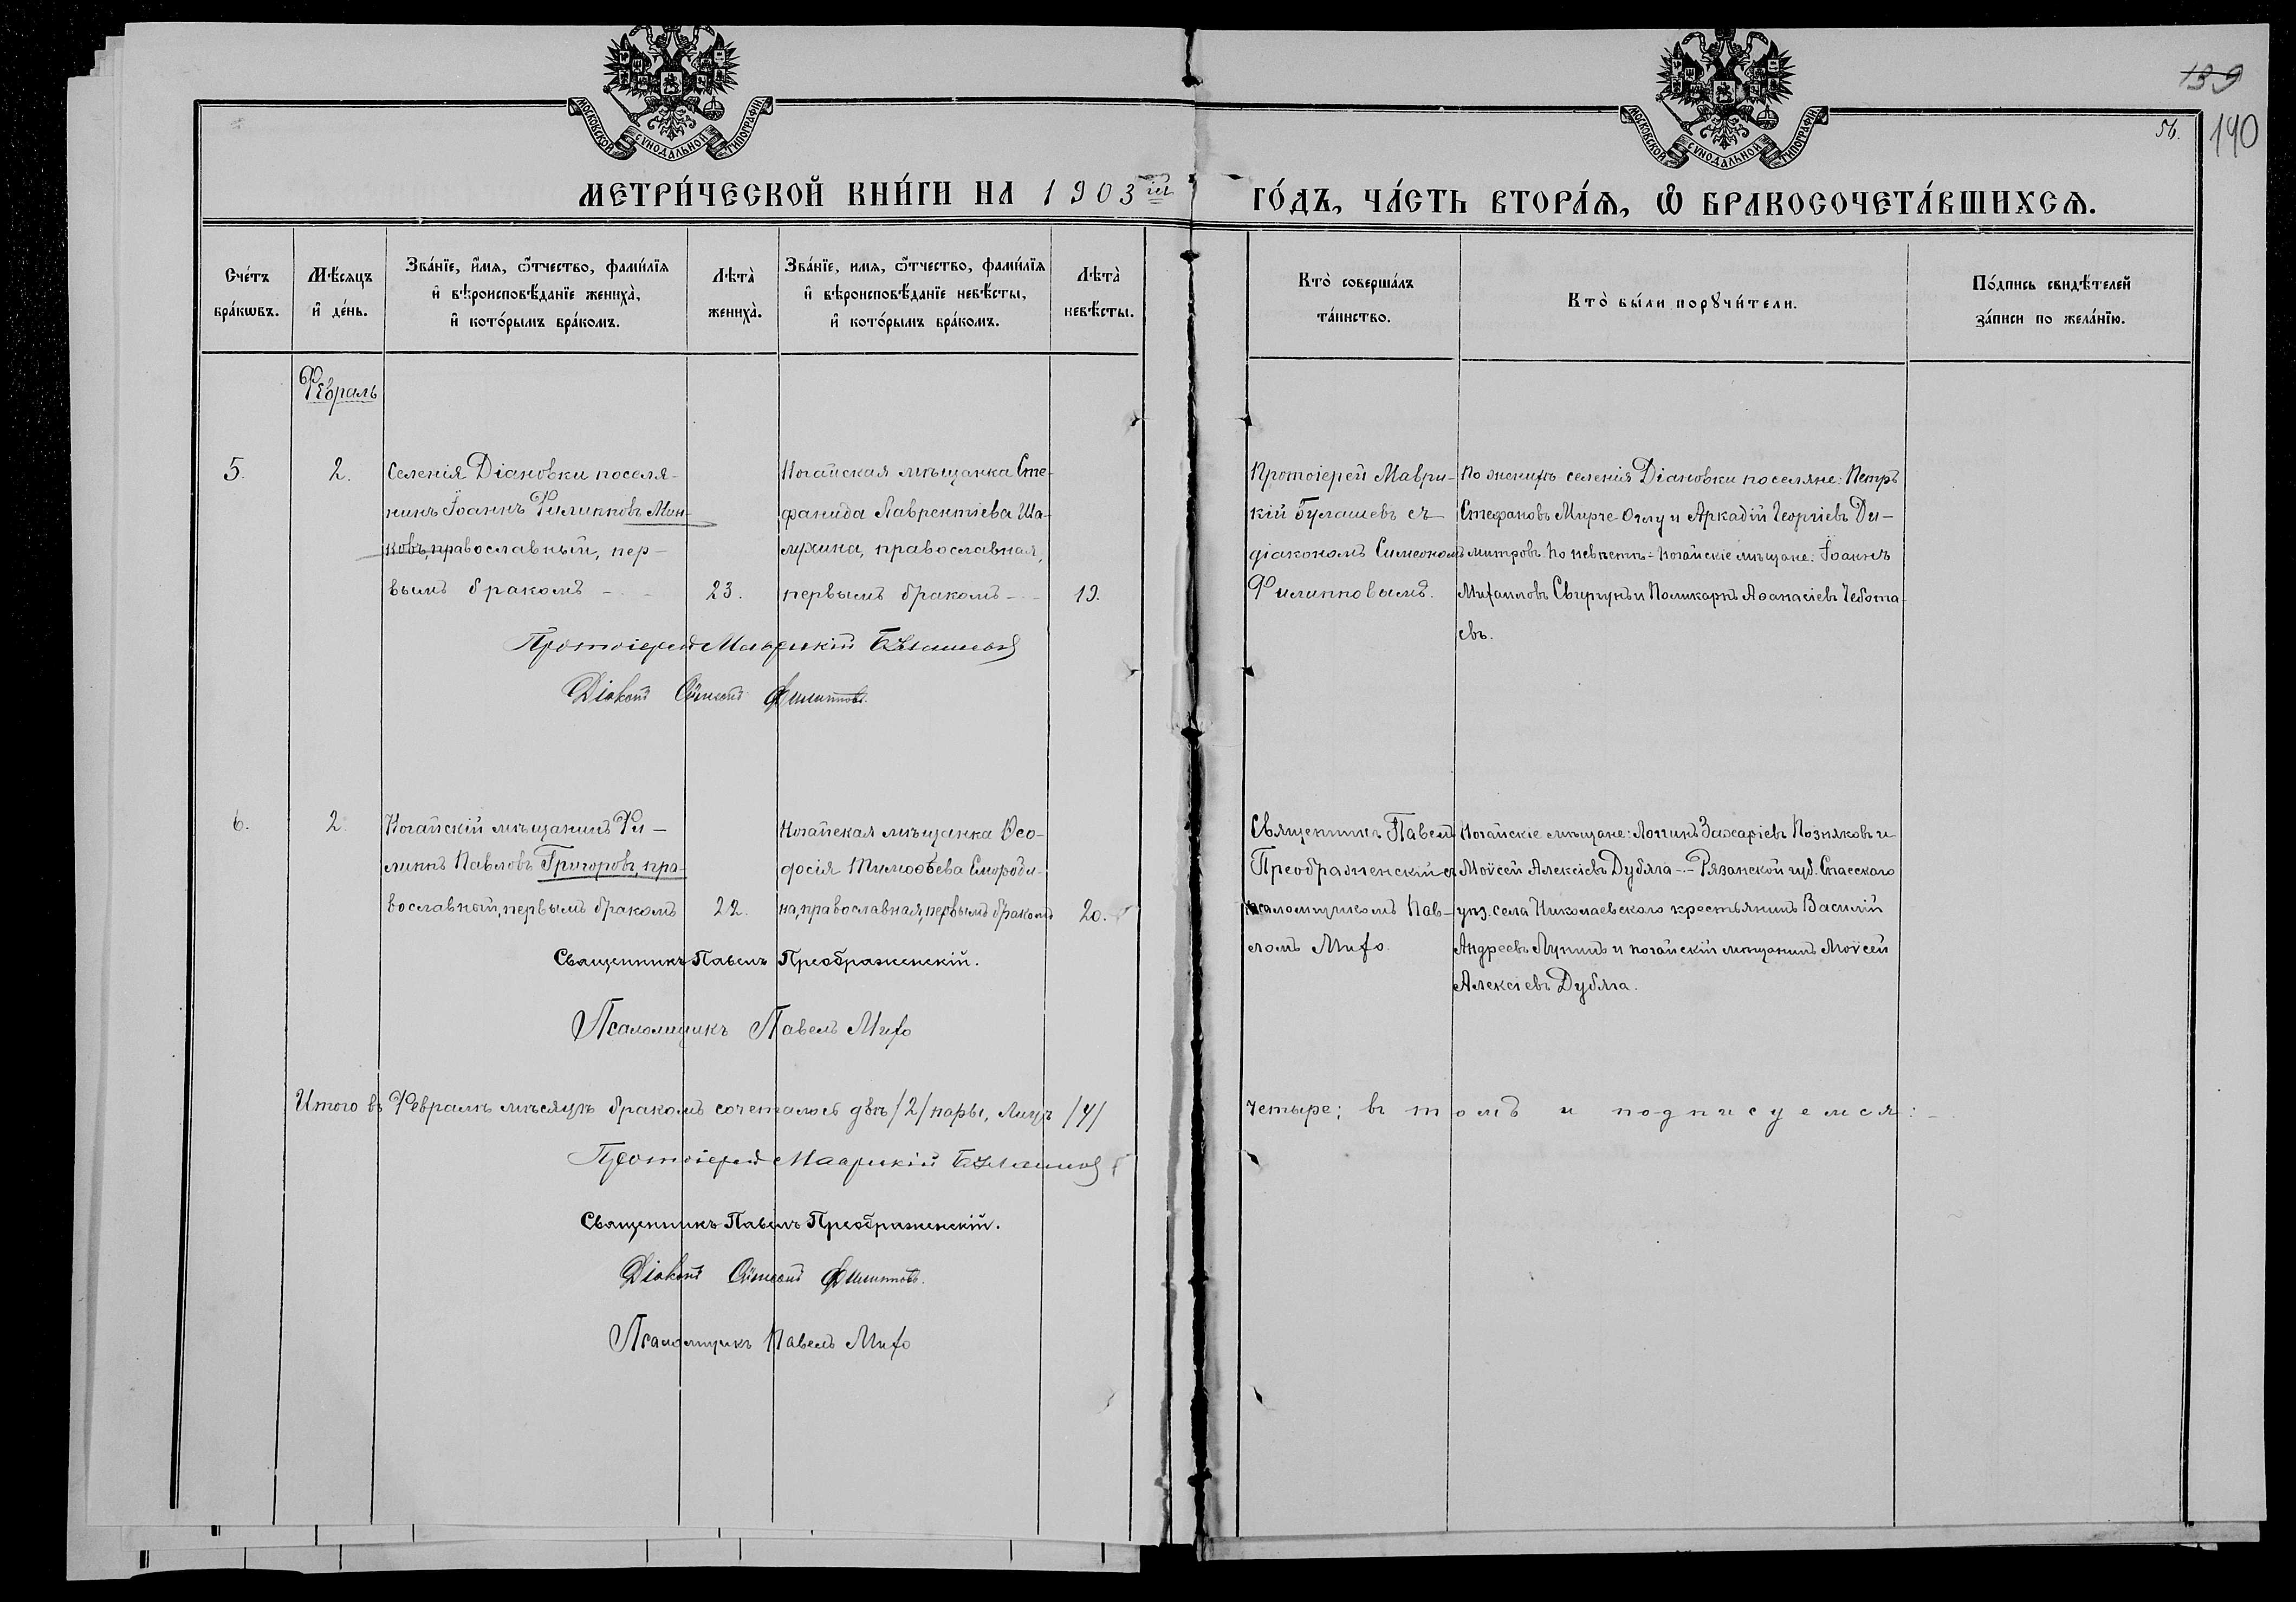 МОСКОВСКОЙ СУНОДАЛЬНОЙ ТИПОГРАФІИ
МОСКОВСКОЙ СУНОДАЛЬНОЙ ТИПОГРАФІИ
139
56.
140
МЕТРИ́ЧЕСКОЙ КНИ́ГИ НА 1903 ій ГО́ДЪ, ЧА́СТЬ ВТОРА́Ѧ, Ѽ БРАКОСОЧЕТА́ВШИХСѦ.
Сче́тъ
бра́кѡвъ.
Мѣ́сяцъ
и҆ де́нь.
Зва́нїе, и҆́мя, ѻ҆́тчество, фами́лїя
и҆ вѣроисповѣ́данїе жениха̀,
и҆ кото́рымъ бра́комъ.
Лѣта̀
жениха̀.
Зва́нїе, имя, ѻ҆́тчество, фами́лїя
и҆ вѣроисповѣ́данїе невѣ́сты,
и҆ кото́рымъ бра́комъ.
Лѣта̀
невѣ́сты.
Кто̀ соверша́лъ
та́инство.
Кто̀ бы́ли порꙋчи́тели.
По́дпись свидѣ́телей
за́писи по жела́нїю.
Февраль
5.
2.
Селенія Діановки поселя-
нинъ Іоаннъ Филипповъ Мин-
ковъ, православный, пер-
вымъ бракомъ - -
23.
Ногайская мѣщанка Сте-
фанида Лаврентіева Ша-
мрина, православная,
первымъ бракомъ - -
19.
Протоіерей Маври-
кій Булашевъ съ
діакономъ Симеономъ
Филипповымъ.
По женихѣ селенія Діановки поселяне: Петръ
Стефановъ Мирче-Оглу и Аркадій Георгіевъ Ди-
митровъ. По невѣстѣ: ногайскіе мѣщане: Іоаннъ
Михаиловъ Свиргунъ и Поликарпъ Аѳанасіевъ Чебота-
евъ.
Протоіерей Маврикій Булашевъ
Діаконъ Симеонъ Филипповъ.
6.
2.
Ногайскій мѣщанинъ Фи-
липпъ Павловъ Григоровъ, пра-
вославный, первымъ бракомъ
22.
Ногайская мѣщанка Ѳео-
досія Тимоѳеева Смороди-
на, православная, первымъ бракомъ
20.
Священникъ Павелъ
Преображенскій съ
псаломщикомъ Пав-
ломъ Михо.
Ногайскіе мѣщане: Логинъ Захаріевъ Позняковъ и
Моѵсей Алексіевъ Дубяга -.- Рязанской губ. Спасскаго
уѣз. села Николаевскаго крестьянинъ Василій
Андреевъ Лунинъ и ногайскій мѣщанинъ Моѵсей
Алексіевъ Дубяга.
Священникъ Павелъ Преображенскій.
Псаломщикъ Павелъ Михо
Итого въ Февралѣ мѣсяцѣ бракомъ сочеталось двѣ /2/ пары, лицъ /4/ четыре; въ томъ и подписуемся: -
Протоіерей Маврикій Булашевъ
Священникъ Павелъ Преображенскій.
Діаконъ Симеонъ Филипповъ.
Псаломщикъ Павелъ Михо